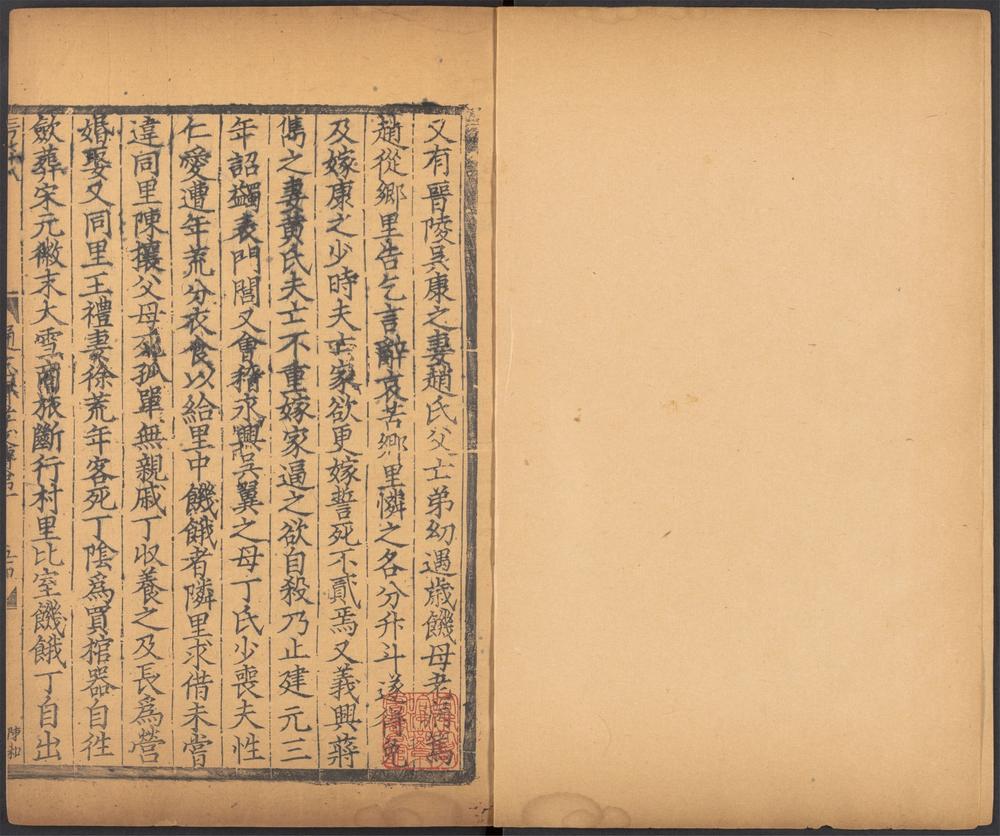 又有晉陵吳康之妻趙氏父亡弟幼遇歲饑母老病篤
趙從鄉里告乞言辭哀苦鄉里憐之各分升斗遂得免
及嫁康之少時夫亡家欲更嫁誓死不貳焉又義興蔣
儁之妻黃氏夫亡不重嫁家逼之欲自殺乃止建元三
年詔蠲表門閭又會稽永興吳翼之母丁氏少喪夫性
仁愛遭年荒分衣食以給里中饑餓者隣里求借未嘗
違同里陳攘父母死孤單無親戚丁收養之及長爲營
婚娶又同里王禮妻徐荒年客死丁陰爲買棺器自徃
歛葬宋元徽末大雪商旅斷行村里比室饑餓丁自出
陳和